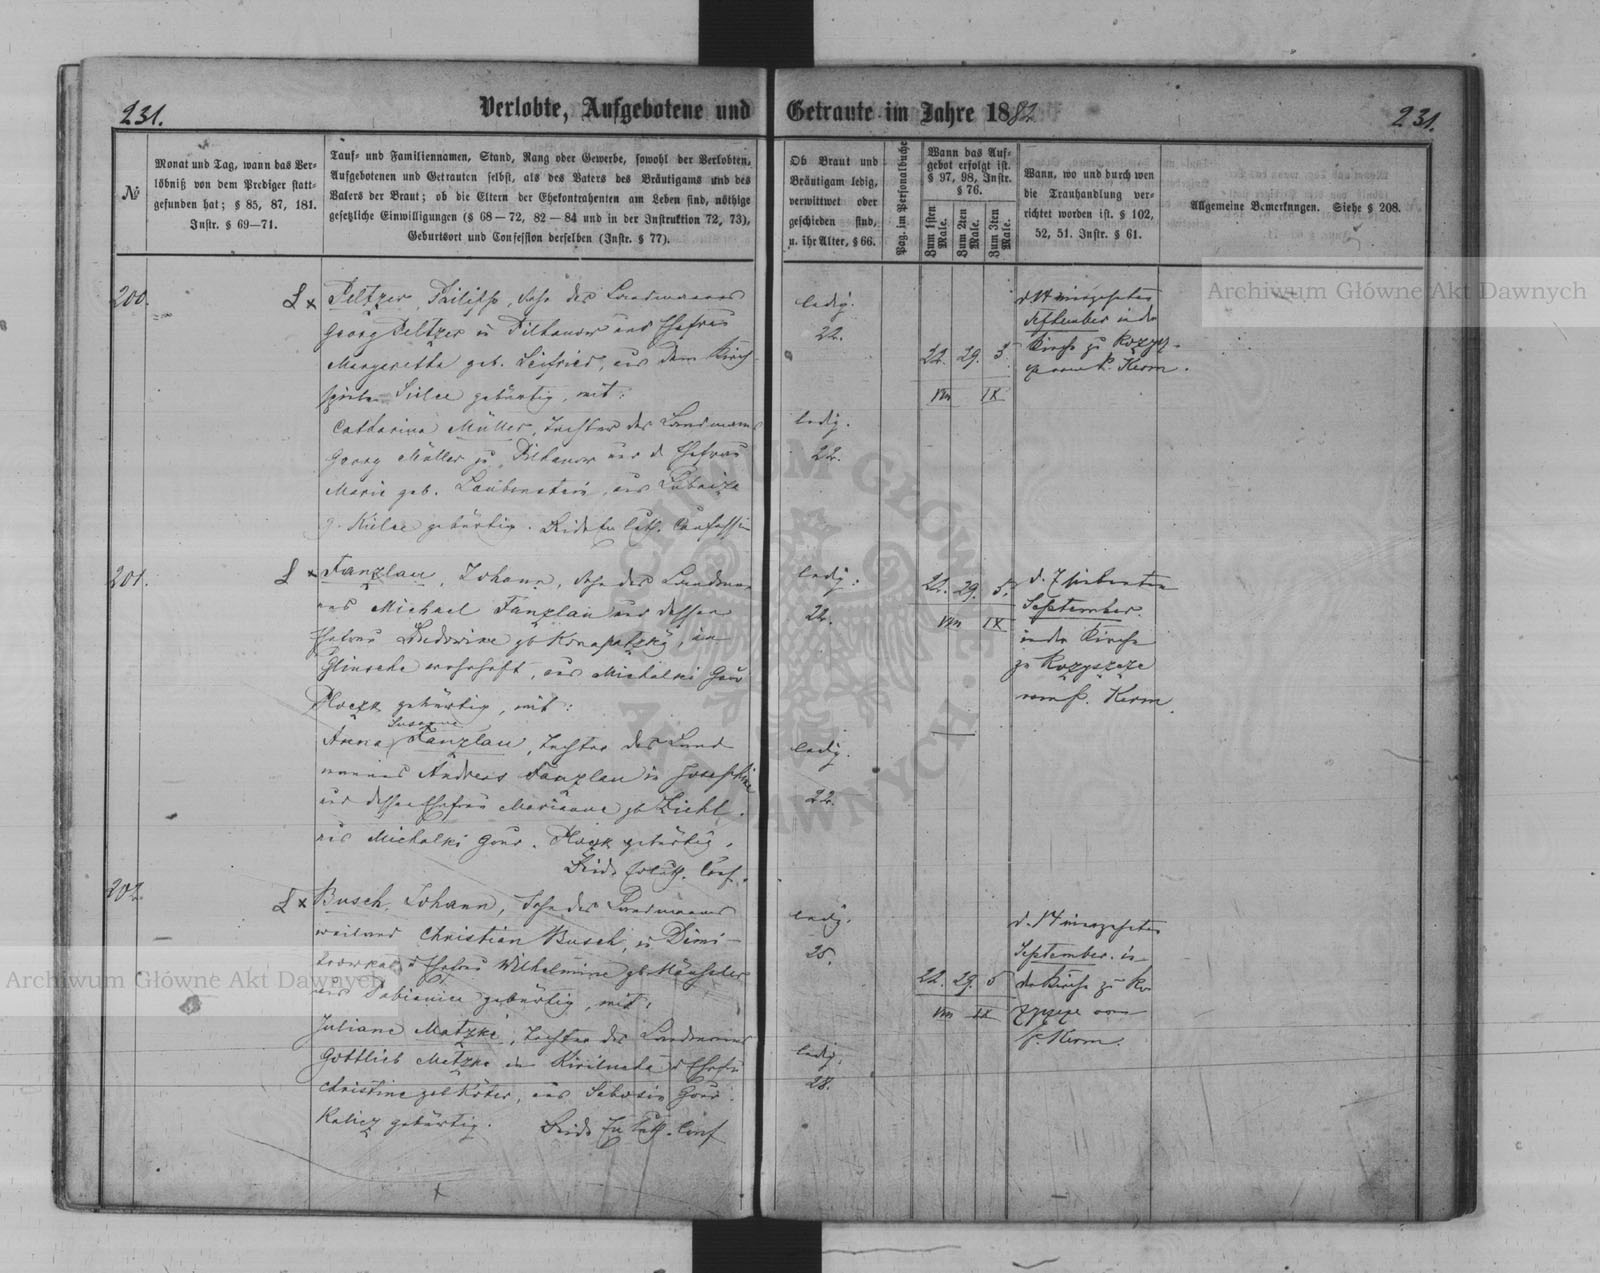 231.
Verlobte, Aufgebotene und
Getraute im Jahre 1882
231.
№
Monat und Tag, wann das Ver-
löbniß von dem Prediger statt-
gefunden hat; § 85, 87, 181.
Instr. § 69—71.
Tauf- und Familiennamen, Stand, Rang oder Gewerbe, sowohl der Verlobten,
Aufgebotenen und Getrauten selbst, als des Vaters des Bräutigams und des
Vaters der Braut; ob die Eltern der Ehekontrahenten am Leben sind, nöthige
gesetzliche Einwilligungen (§ 68—72, 82—84 und in der Instruktion 72, 73),
Geburtsort und Confession derselben (Instr. § 77).
Ob Braut und
Bräutigam ledig,
verwittwet oder
geschieden sind,
u. ihr Alter, § 66.
Pag. im Personalbuche
Wann das Auf-
gebot erfolgt ist.
§ 97, 98, Instr.
§ 76.
Zum 1sten
Male.
Zum 2ten
Male.
Zum 3ten
Male.
Wann, wo und durch wen
die Trauhandlung ver-
richtet worden ist. § 102,
52, 51. Instr. § 61.
Allgemeine Bemerkungen. Siehe § 208.
200.
Peltzer, Philipp, Sohn des Landmanns
Georg Peltzer in und Ehefrau
Margaretha geb. Seifried, aus dem Kirch-
spiele gebürtig, mit:
Catharina Müller, Tochter des Landmanns
Georg Müller zu und d Ehefrau
Marie geb. Laubenstein, aus
g. Kielce gebürtig. Beide Confession
ledig.
22.
ledig.
22.
22. 29. 5.
VIII IX
d. 14
September in der
Kirche zu
P. Kerm.
201.
Fanzlau, Johann, Sohn des Landman
Michael Fanzlau und dessen
Ehefrau Ludowike gb , in
wohnhaft, aus Michalki Gouv
Plozk gebürtig, mit:
Susanna
Anna Fanzlau, Tochter des Land
mannes Andreas Fanzlau in Josephine
und dessen Ehefrau Marianne gb Ziehl
aus Michalki Gouv. Plozk gebürtig.
Beide Luth. Conf.
ledig.
22.
ledig.
22.
22. 29. 5.
VIII IX
d. 7 siebenten
September.
in der Kirche
zu Rozyszcze
vom P. Kerm.
202.
Busch, Johann, Sohn des Landmanns
weiland Christian Busch, in Dimi-
Ehefrau Wilhelmine gb
aus Pabianice gebürtig, mit:
Juliane Matzke, Tochter des Landmanns
Gottlieb Matzke in d Ehefr
Christine geb Köter, aus Gouv.
Kalicz gebürtig. Beide Luth. Conf
ledig.
25.
ledig.
28.
22. 29. 5
VIII IX
d. 14
September in
der Kirche zu Ro
zyszcze vom
P. Kerm.
Archiwum Główne Akt Dawnych
Archiwum Główne Akt Dawnych
ARCHIWUM GŁÓWNE AKT DAWNYCH